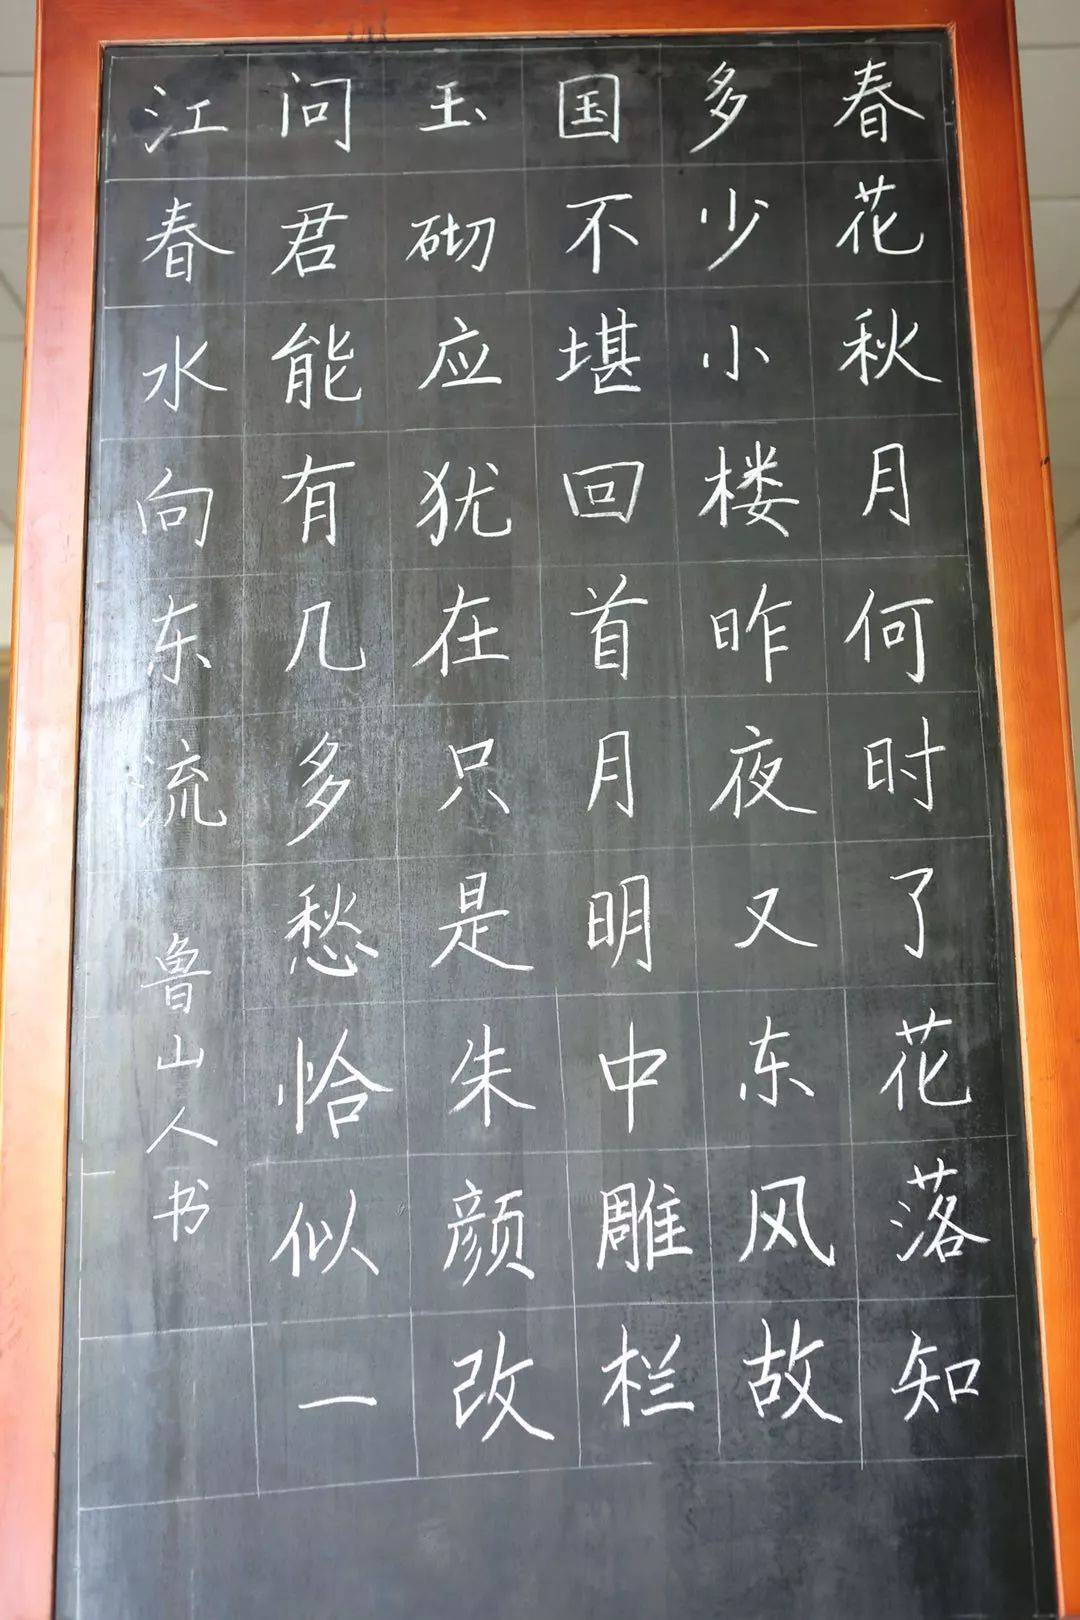 春花秋月何时了花落知
多少小楼昨夜又东风故
国不堪回首月明中雕栏
玉砌应犹在只是朱颜改
问君能有几多愁恰似一
江春水向东流
鲁山人书